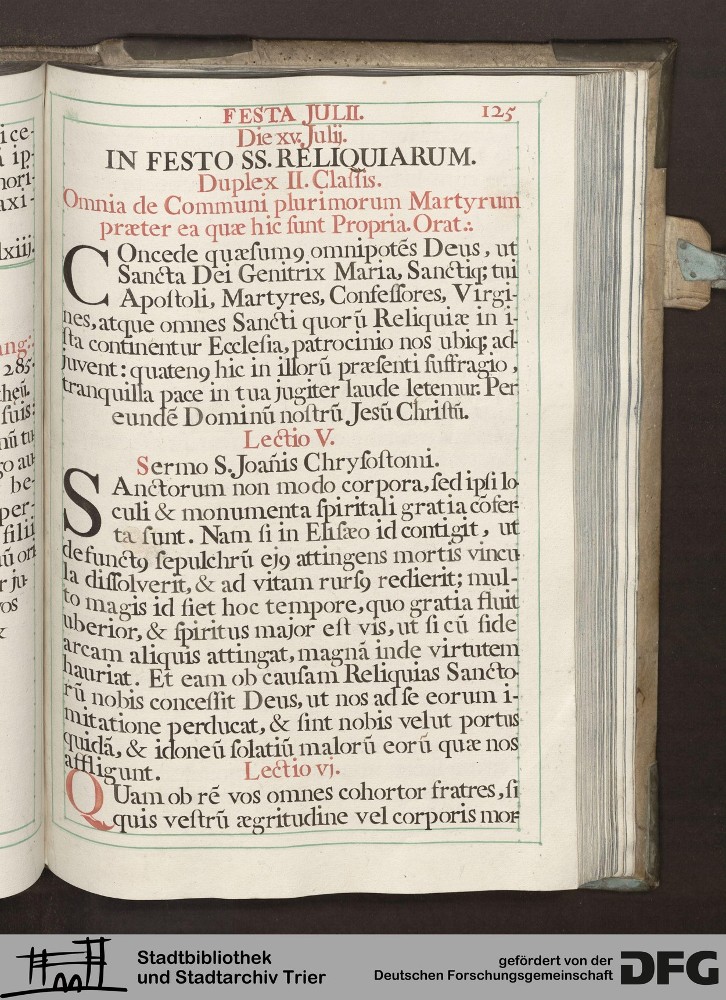 ice-
ip-
nori-
axi-
lxiij.
ang:.
285.
theū.
fuis:
nū tu
go au
be-
per-
filii
ū ori
r ju-
vos
&
FESTA JULII. 125
Die xv. Julij.
IN FESTO SS. RELIQUIARUM.
Duplex II. Claſsis.
Omnia de Communi plurimorum Martyrum
præter ea quæ hic ſunt Propria. Orat.:.
COncede quæſumꝯ omnipotēs Deus, ut
Sancta Dei Genitrix Maria, Sanctiq; tui
Apoſtoli, Martyres, Confeſſores, Virgi-
nes, atque omnes Sancti quorū Reliquiæ in i-
ſta continentur Eccleſia, patrocinio nos ubiq; ad-
juvent: quatenꝯ hic in illorū præſenti ſuffragio,
tranquilla pace in tua jugiter laude letemur. Per
eundē Dominū noſtrū Jesū Chriſtū.
Lectio V.
Sermo S. Joan̄is Chryſoſtomi.
SAnctorum non modo corpora, ſed ipſi lo-
culi & monumenta ſpiritali gratia cōfer-
ta ſunt. Nam ſi in Eliſæo id contigit, ut
defunctꝯ ſepulchrū ejꝯ attingens mortis vincu
la diſſolverit, & ad vitam rurſꝯ redierit; mul-
to magis id fiet hoc tempore, quo gratia fluit
uberior, & ſpiritus major eſt vis, ut ſi cū fide
arcam aliquis attingat, magnā inde virtutem
hauriat. Et eam ob cauſam Reliquias Sancto-
rū nobis conceſſit Deus, ut nos ad ſe eorum i-
mitatione perducat, & ſint nobis velut portus
quidā, & idoneū ſolatiū malorū eorū quæ nos
affligunt. Lectio vj.
QUam ob rē vos omnes cohortor fratres, ſi
quis veſtrū ægritudine vel corporis mor-
Stadtbibliothek
und Stadtarchiv Trier
gefördert von der
Deutschen Forschungsgemeinschaft
DFG